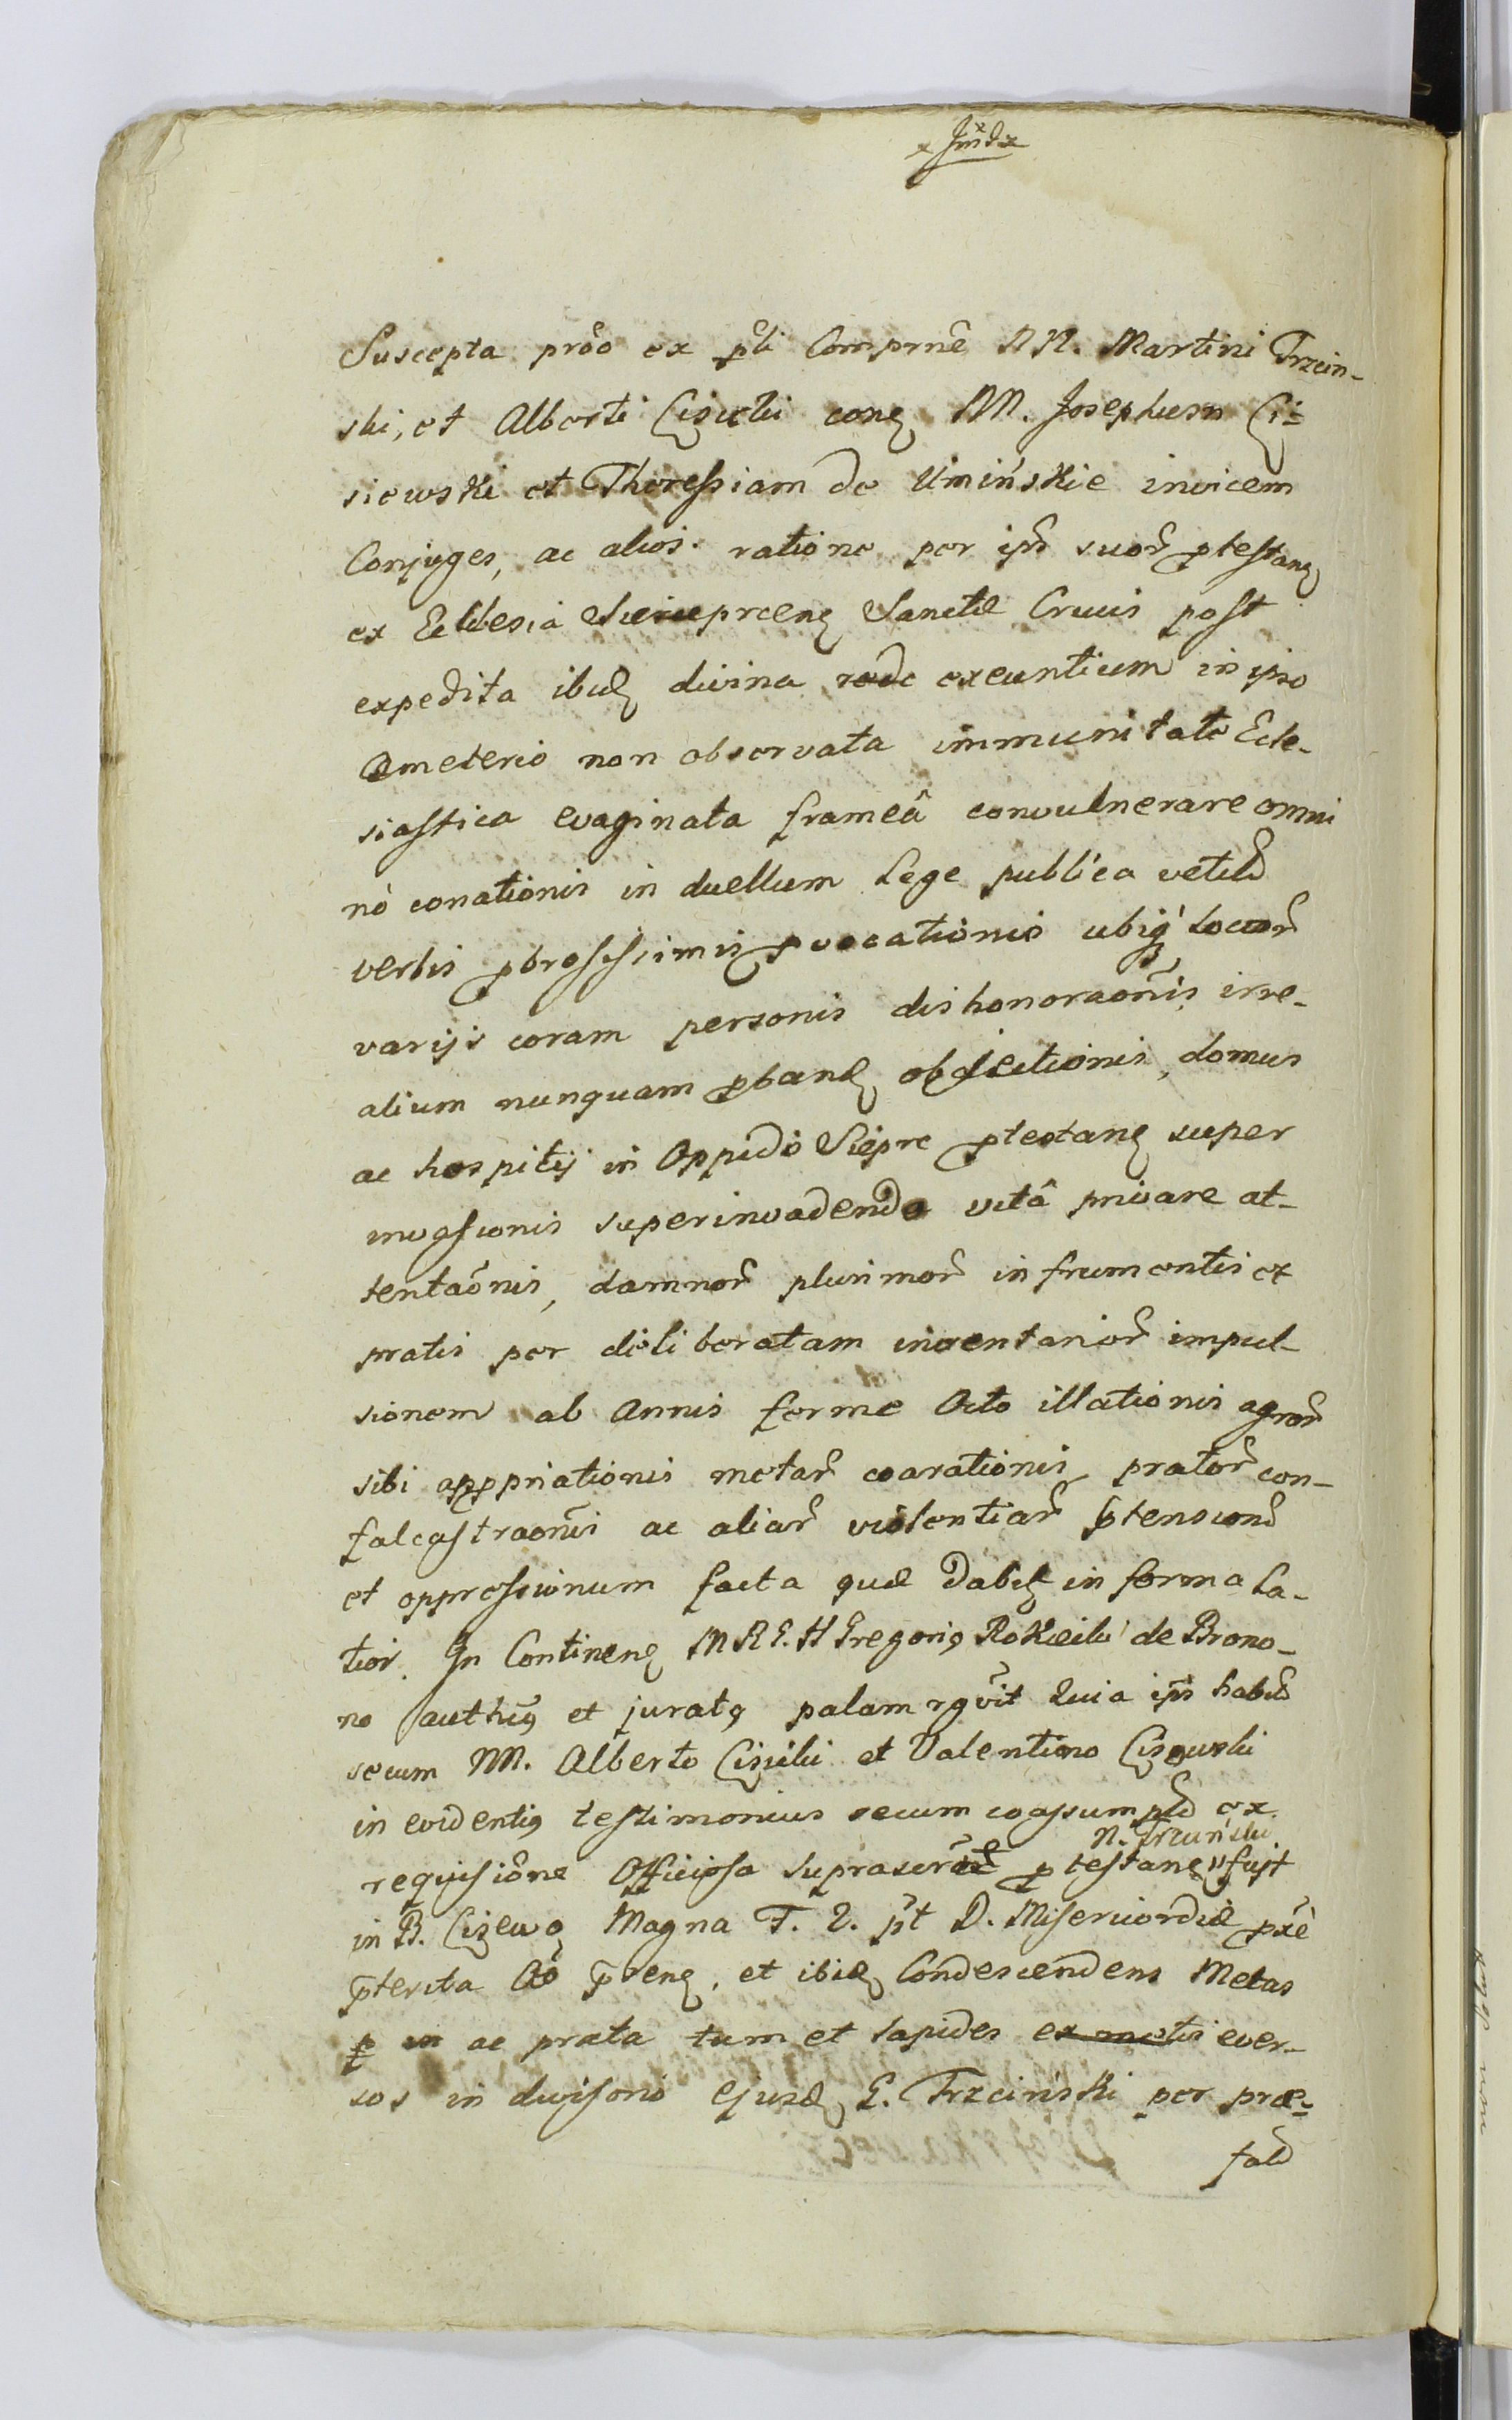 Suscepta prõo ex pti Comprnẽ NN. Martini Trzcin-
ski, et Alberti Cissielski conq NN. Josephum Ci-
siewski et Theressiam de Umińskie invicem
Conjuges, ac alios ratione per ips suor ptestanq
ex Ecclesia Sierpcenq Sanctæ Crucis post
expedita ibidq divina rede exeuntium in ipso
Cmeterio non observata immunitate Eccle-
siastica evaginata frameâ convulnerare omni
nò conationis in duellum Lege publica vetitũ
verbis pbrosissimis pvocationis ubiq locor
varijs coram personis dishonoraõnis, irre-
alium nunquam pbandq objectionis, domus
ac hospitij in Oppido Siepre ptestanq super
invasionis superinvadendo vitâ privare at-
tentaõnis, damnor plurimor in frumentis et
pratis per deliberatam inventarior impul-
sionem ab Annis ferme Octo illationis agror
sibi appropriationis metar coarationis prator con-
falcastraonis ac aliar violentiar ptensionũ
et oppressionum facta quæ dabitq in forma La-
tior. In Continenq M R G. H Gregoriq Rokicki de Brono-
no authẽq et juratq palam rgvit Quia ips habitũ
secum NN. Alberto Cissielski et Valentino Cissewski
in evidentiq testimonius secum coassumptũ ex
requisiõne Officiosa suprascrõ ptestanq N. Trzcinski fuit
in B. Cissewoq Magna F. 2. pt D. Misericordiæ pxè
pterita Aõ pñenq, et ibidq Condescendens Metas
p in ac prata tum et lapides ex metis ever-
sos in divisorio Ejusdq G. Trzcinski per præ-
fatũ